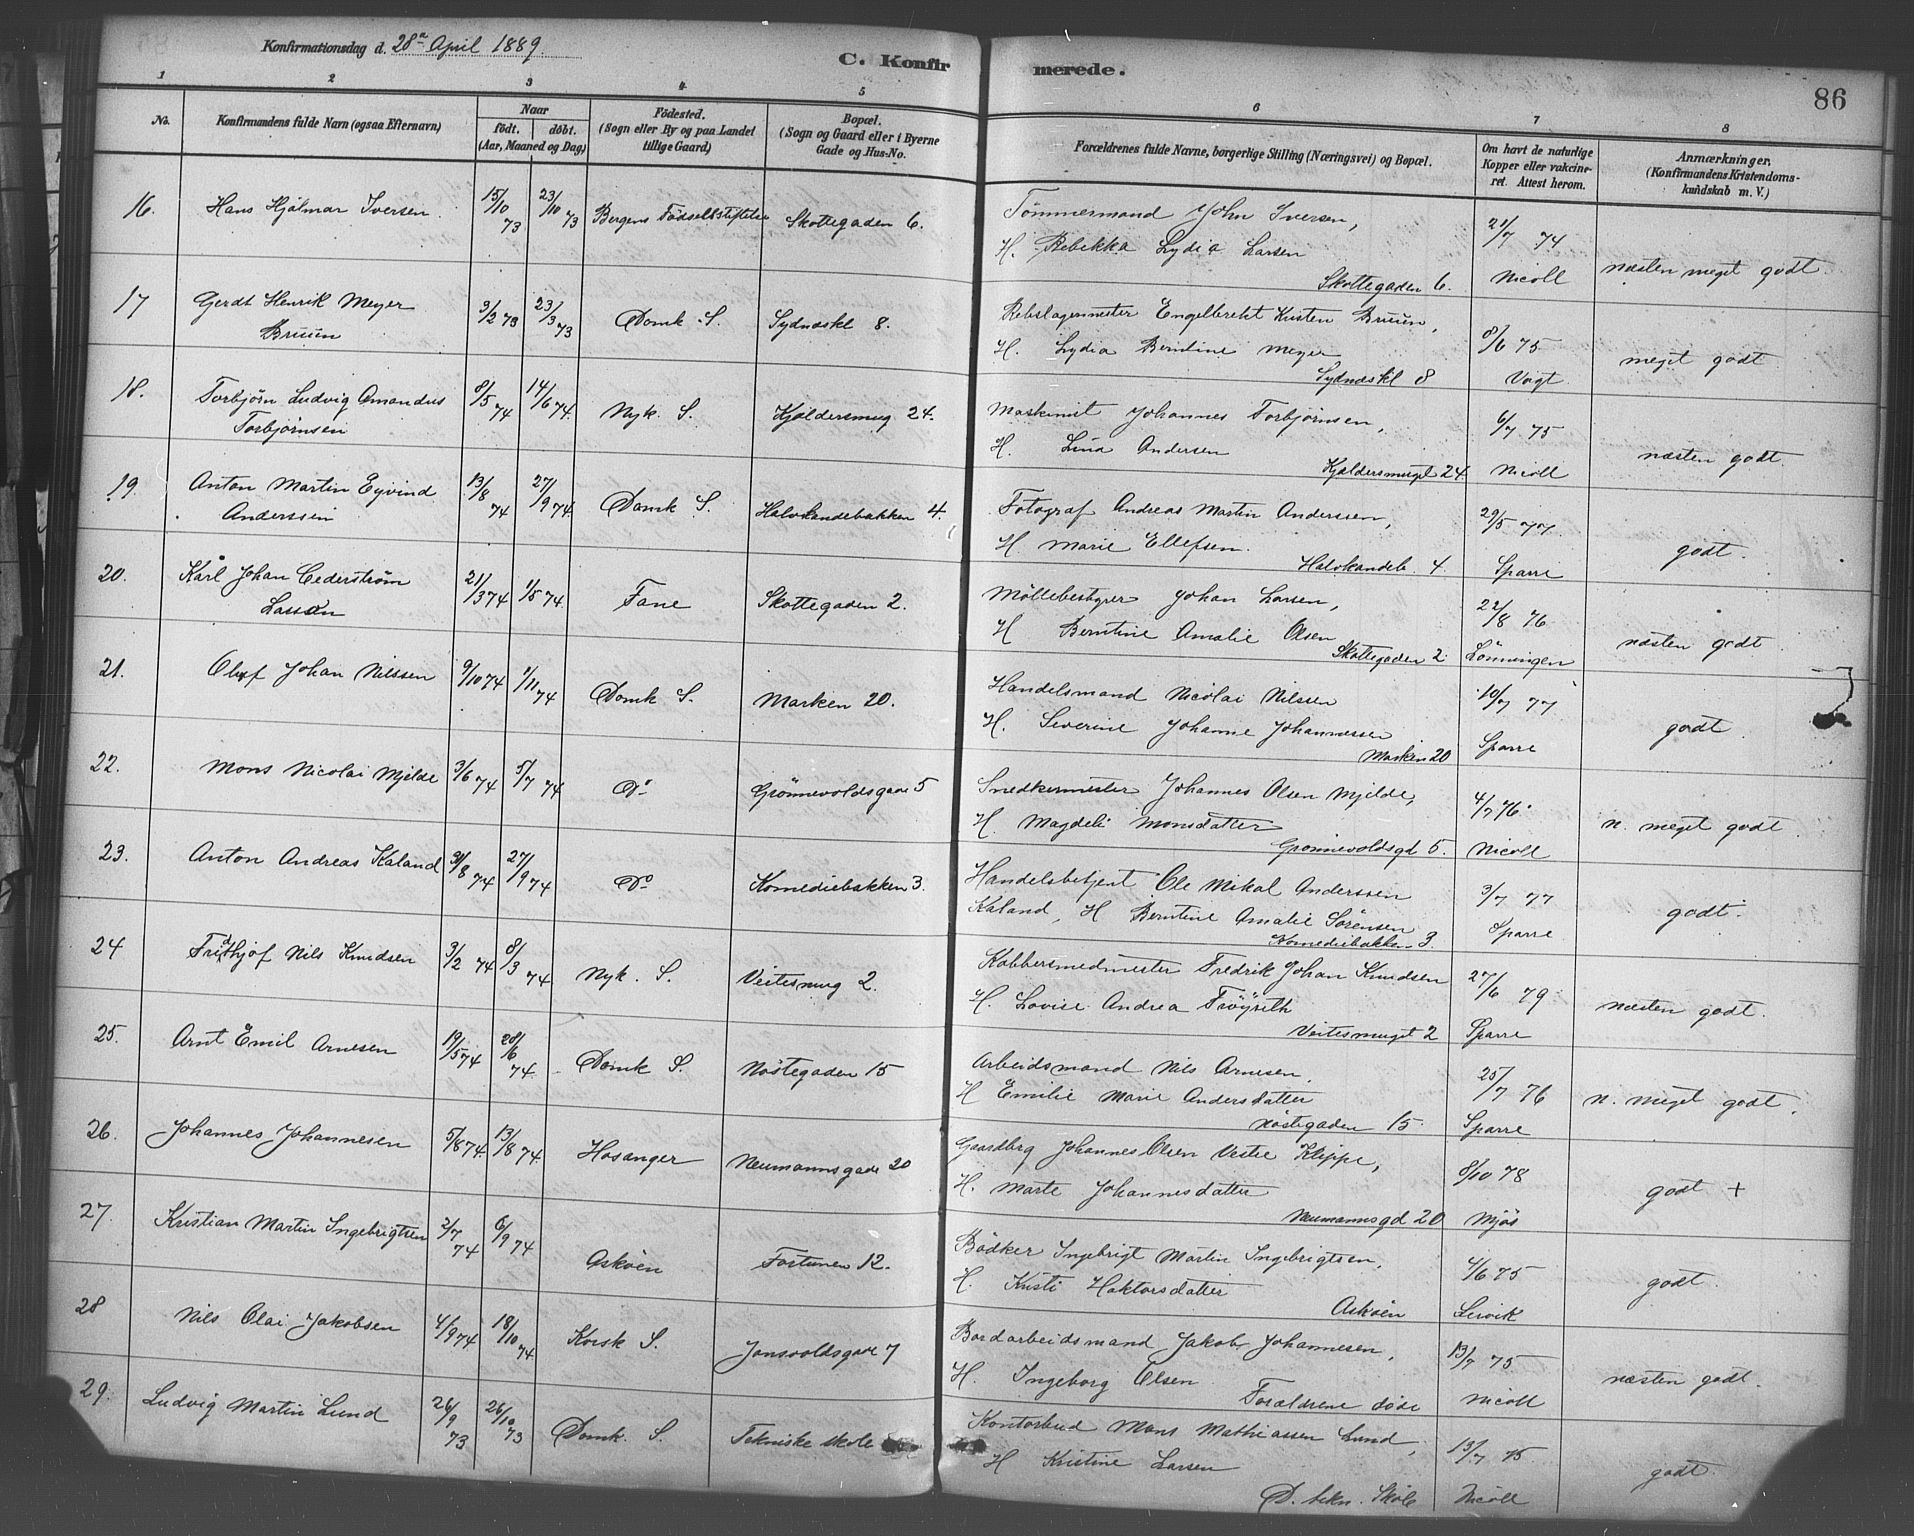 Konfirmationsdag d. 28de April 1889.
C. Konfirmerede.
86
1 2 3 4 5 6 7 8
No.
Konfirmandens fulde Navn (ogsaa Efternavn)
Naar
födt. döbt.
(Aar, Maaned og Dag)
Födested.
(Sogn eller By og paa Landet
tillige Gaard)
Bopæl.
(Sogn og Gaard eller i Byerne
Gade og Hus-No.
Forældrenes fulde Navne, borgerlige Stilling (Næringsvei) og Bopæl.
Om havt de naturlige
Kopper eller vakcine-
ret. Attest herom.
Anmærkninger.
(Konfirmandens Kristendoms-
kundskab m. V.)
16. Hans Hjalmar Iversen 15/10 73 23/10 73 Bergens Födselsstiftelse Skottegaden 6.
Tömmermand John Iversen,
H. Rebekka Lydia Larsen
Skottegaden 6.
21/7 74 Nicoll
næsten meget godt.
17 Gerdt Henrik Meyer
Bruun
3/2 73 23/3 73 Domk. S. Sydneskl 8.
Rebslagermester Engelbrekt Kusten Bruun,
H. Lydia Berntine Meyer
Sydneskl 8
8/6 75 Voigt
meget godt
18. Torbjörn Ludvig Amandus
Torbjörnsen
8/5 74 14/6 74. Nyk. S. Kjeldersmug 24.
Maskinist Johannes Torbjörnsen,
H. Lina Andersen
Kjeldersmuget 24.
6/7 75 Nicoll
næsten godt.
19. Anton Martin Eyvind
Anderssen
13/8 74 27/9 74 Domk S. Halvkandebakken 4.
Fotograf Andreas Martin Anderssen,
H Marie Ellefsen.
Halvkandeb. 4.
29/5 77 Sparre
godt
20. Karl Johan Cederström
Lassen
21/3 74 1/5 74. Fane Skottegaden 2.
Möllebestyrer Johan Larsen,
H Berntine Amalie Olsen
Skottegaden 2.
22/8 76 Lönningen
næsten godt
21. Oluf Johan Nilssen 9/10 74 1/11 74 Domk S. Marken 20.
Handelsmand Nicolai Nilssen
H. Severine Johanne Johannessen
Marken 20
10/7 77 Sparre
godt.
22. Mons Nicolai Mjelde 3/6 74 5/7 74 Do Grönnevoldsgade 5
Snedkermester Johannes Olsen Mjelde,
H. Magdeli Monsdatter
Grönnevoldsgd 5.
4/7 76 Nicoll
n. meget godt.
23. Anton Andreas Kaland 31/8 74 27/9 74 Do Komediebakken 3.
Handelsbetjent Ole Mikal Anderssen
Kaland, H Berntine Amalie Sörensen
Komediebakken 3.
3/7 77 Sparre
godt.
24 Fridthjof Nils Knudsen 3/2 74 8/3 74 Nyk. S. Veitesmug 2.
Kobbersmedmester Fredrik Johan Knudsen
H. Lovise Andrea Fröyseth
Veitesmuget 2
27/6 79 Sparre
næsten godt.
25. Arnt Emil Arnesen 19/5 74 28/6 74 Domk S. Nöstegaden 15
Arbeidsmand Nils Arnesen,
H Emilie Marie Andersdatter
Nöstegaden 15.
25/7 76 Sparre
n. meget godt.
26. Johannes Johannesen 5/8 74. 13/8 74. Hosanger Neumannsgade 20
Gaardbrg Johannes Olsen Vestre Klippe,
H. Marte Johannesdatter
Neumannsgd 20
8/10 78 Mjös
godt +
27. Kristian Martin Ingebrigtsen 2/7 74 6/9 74 Asköen Fortunen 12.
Bödker Ingebrigt Martin Ingebrigtsen,
H. Kristi Haktorsdatter
Asköen
4/6 75 Lervik
godt.
28 Nils Olai Jakobsen 4/9 74 18/10 74 Korsk S. Jonsvoldsgade 7
Bordarbeidsmand Jakob Johannesen,
H. Ingeborg Olsen
Forældrene döde
13/7 75 Nicoll
næsten godt.
29. Ludvig Martin Lund 26/9 73 26/10 73 Domk. S. Tekniske skole
Kontorbud Mons Mathiassen Lund,
H Kristine Larsen
D. tekn. Skole
13/7 75 Nicoll
godt.